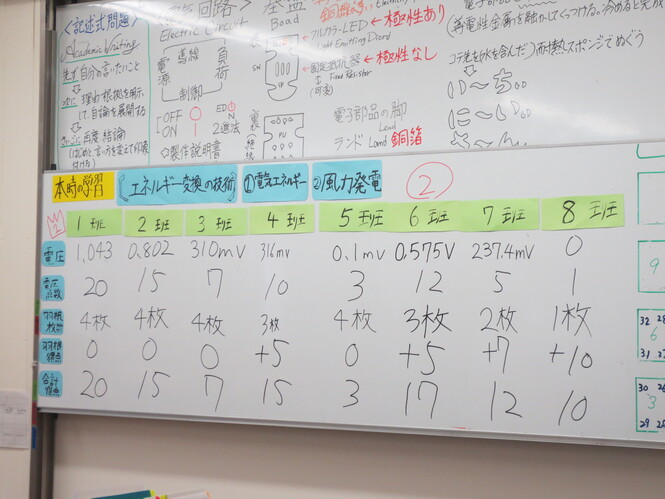 <記述式問題>
Academic Writing
先ず 自分の言いたいこと
次に 理由・根拠を明示
して、自論を展開する
再度 結論
(はじめと、言い方を変えて印象
付ける)
回路
Electric Circuit
電源
導線
負荷
制御
OFF
ON
2進法
製作説明書
基盤
Boad
SW
フルカラーLED ← 極性あり
Light Emitting Diord
固定抵抗器 ← 極性なし
Fixed Resistor
電子部品の脚
Lead
ランド Land 銅箔
(導電性金属を融かしてくっつける。冷めると完成
コテ先を(水を含んだ)耐熱スポンジでぬぐう
本時の学習
[エネルギー変換の技術]
①電気エネルギー
②風力発電
②
1班 2班 3班 4班 5班 6班 7班 8班
電圧 1,043 0.802 310mV 316mv 0.1mv 0.575V 237.4mV 0
電圧点数 20 15 7 10 3 12 5 1
羽根枚数 4枚 4枚 4枚 3枚 4枚 3枚 2枚 1枚
羽根得点 0 0 0 +5 0 +5 +7 +10
合計得点 20 15 7 15 3 17 12 10
9
32
6
31
30
3
29